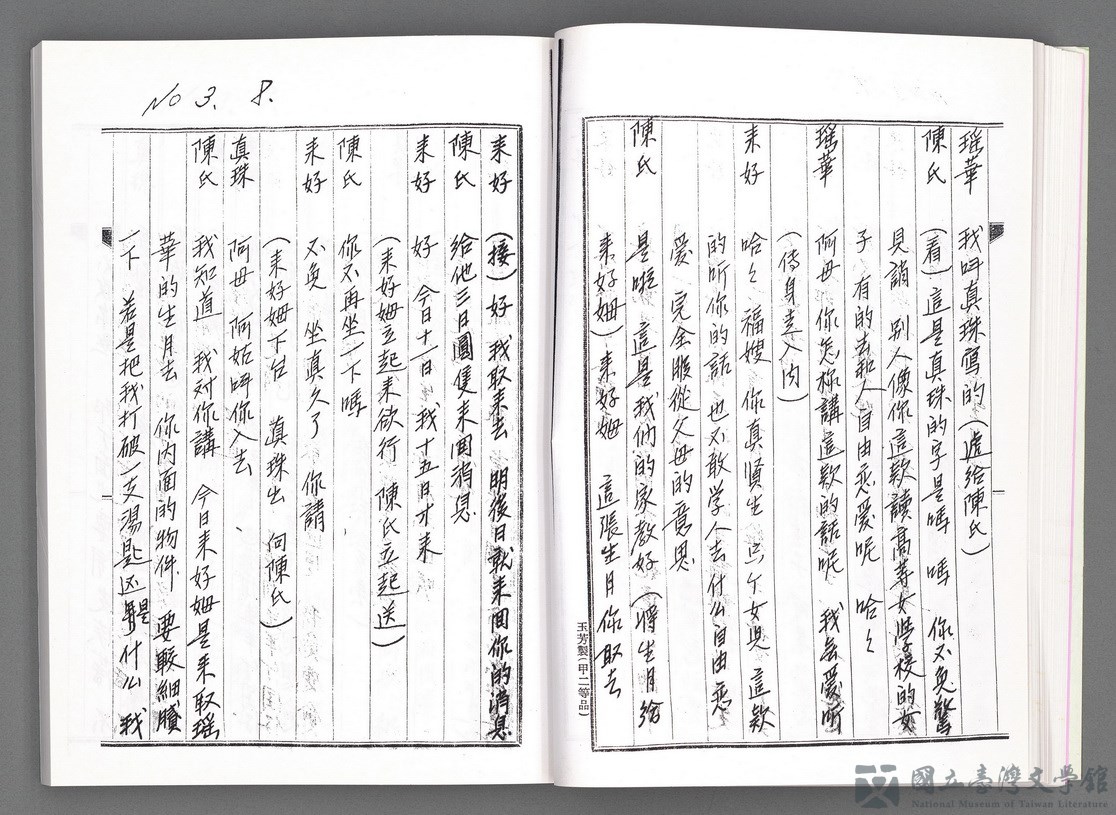 瑶華　我叫真珠寫的（遞給陳氏）
陳氏　（看）這是真珠的字是嗎　嗎　你不免驚
見誚　別人像你這款讀高等女學校的女
子　有的去和人自由恋愛呢　哈々
瑶華　阿母　你怎樣講這款的話呢　我無愛听
（倚身走入内）
来好　哈々　福嫂　你真賢生　這款
的听你的話　也不敢学人去什么自由恋
爱　完全服從父母的意思
陳氏　是啦　這是我们的家教好（將生月給
来好姆）来好姆　這張生月你取去
玉芳製（甲二等品）
No 3. 8.
来好　（接）好　我取来去　明後日就来回你的消息
陳氏　給他三日圓隻来回消息
来好　好　今日十一日　我十五日才来
（来好姆立起来欲行　陳氏立起送）
陳氏　你不再坐一下嗎
来好　不免　坐真久了　你請
（来好姆下台　真珠出　向陳氏）
真珠　阿母　阿姑叫你入去
陳氏　我知道　我对你講　今日来好姆是来取瑶
華的生月去　你内面的物件　要較細膩
一下　若是把我打破一支湯匙　什么　我
國立臺灣文學館
National Museum of Taiwan Literature